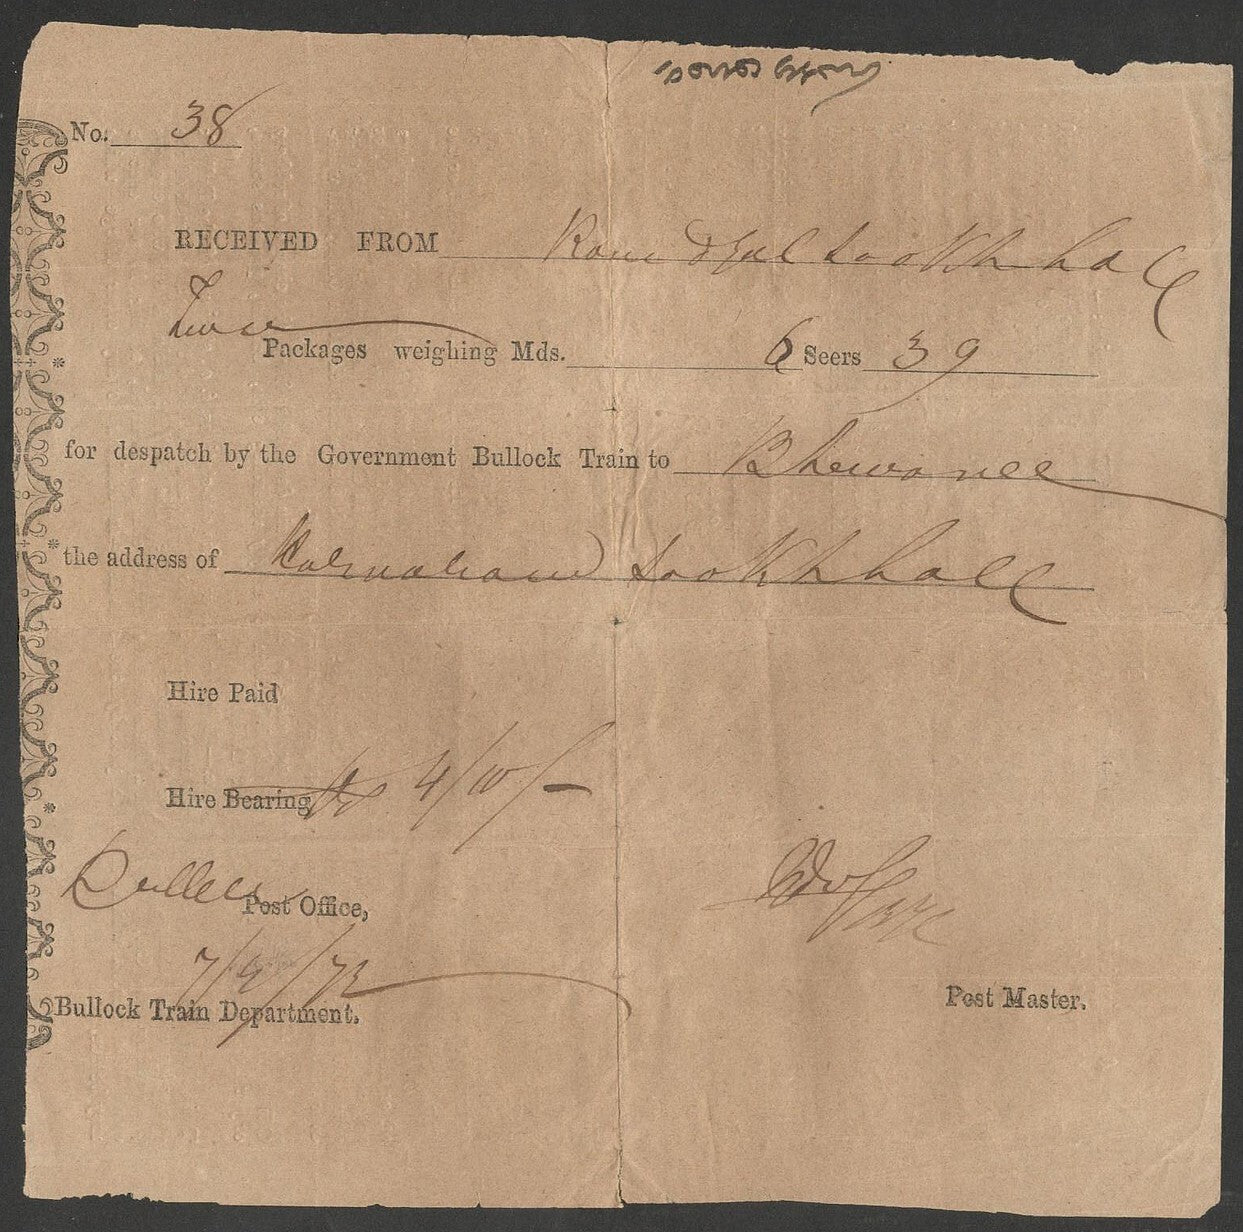 No. 38
RECEIVED FROM
Two
Packages weighing Mds. 6 Seers 39
for despatch by the Government Bullock Train to Bhewanee
the address of Sookhhall
Hire Paid
Hire Bearing 4/10/-
Post Office,
7/9/72
Bullock Train Department.
Post Master.